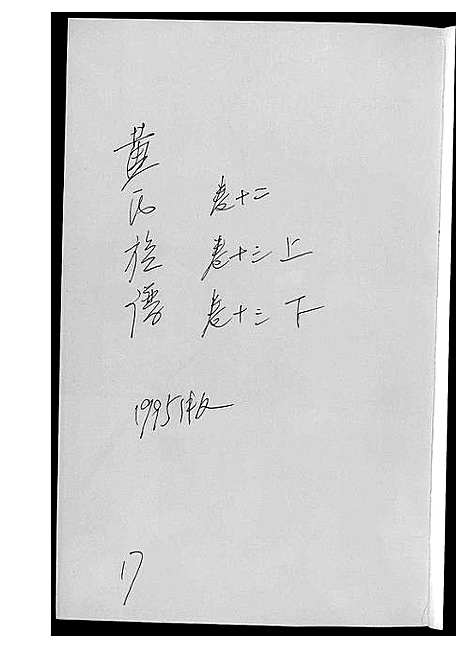 黄氏族谱
卷十二
卷十三上
卷十三下
1995年版
17